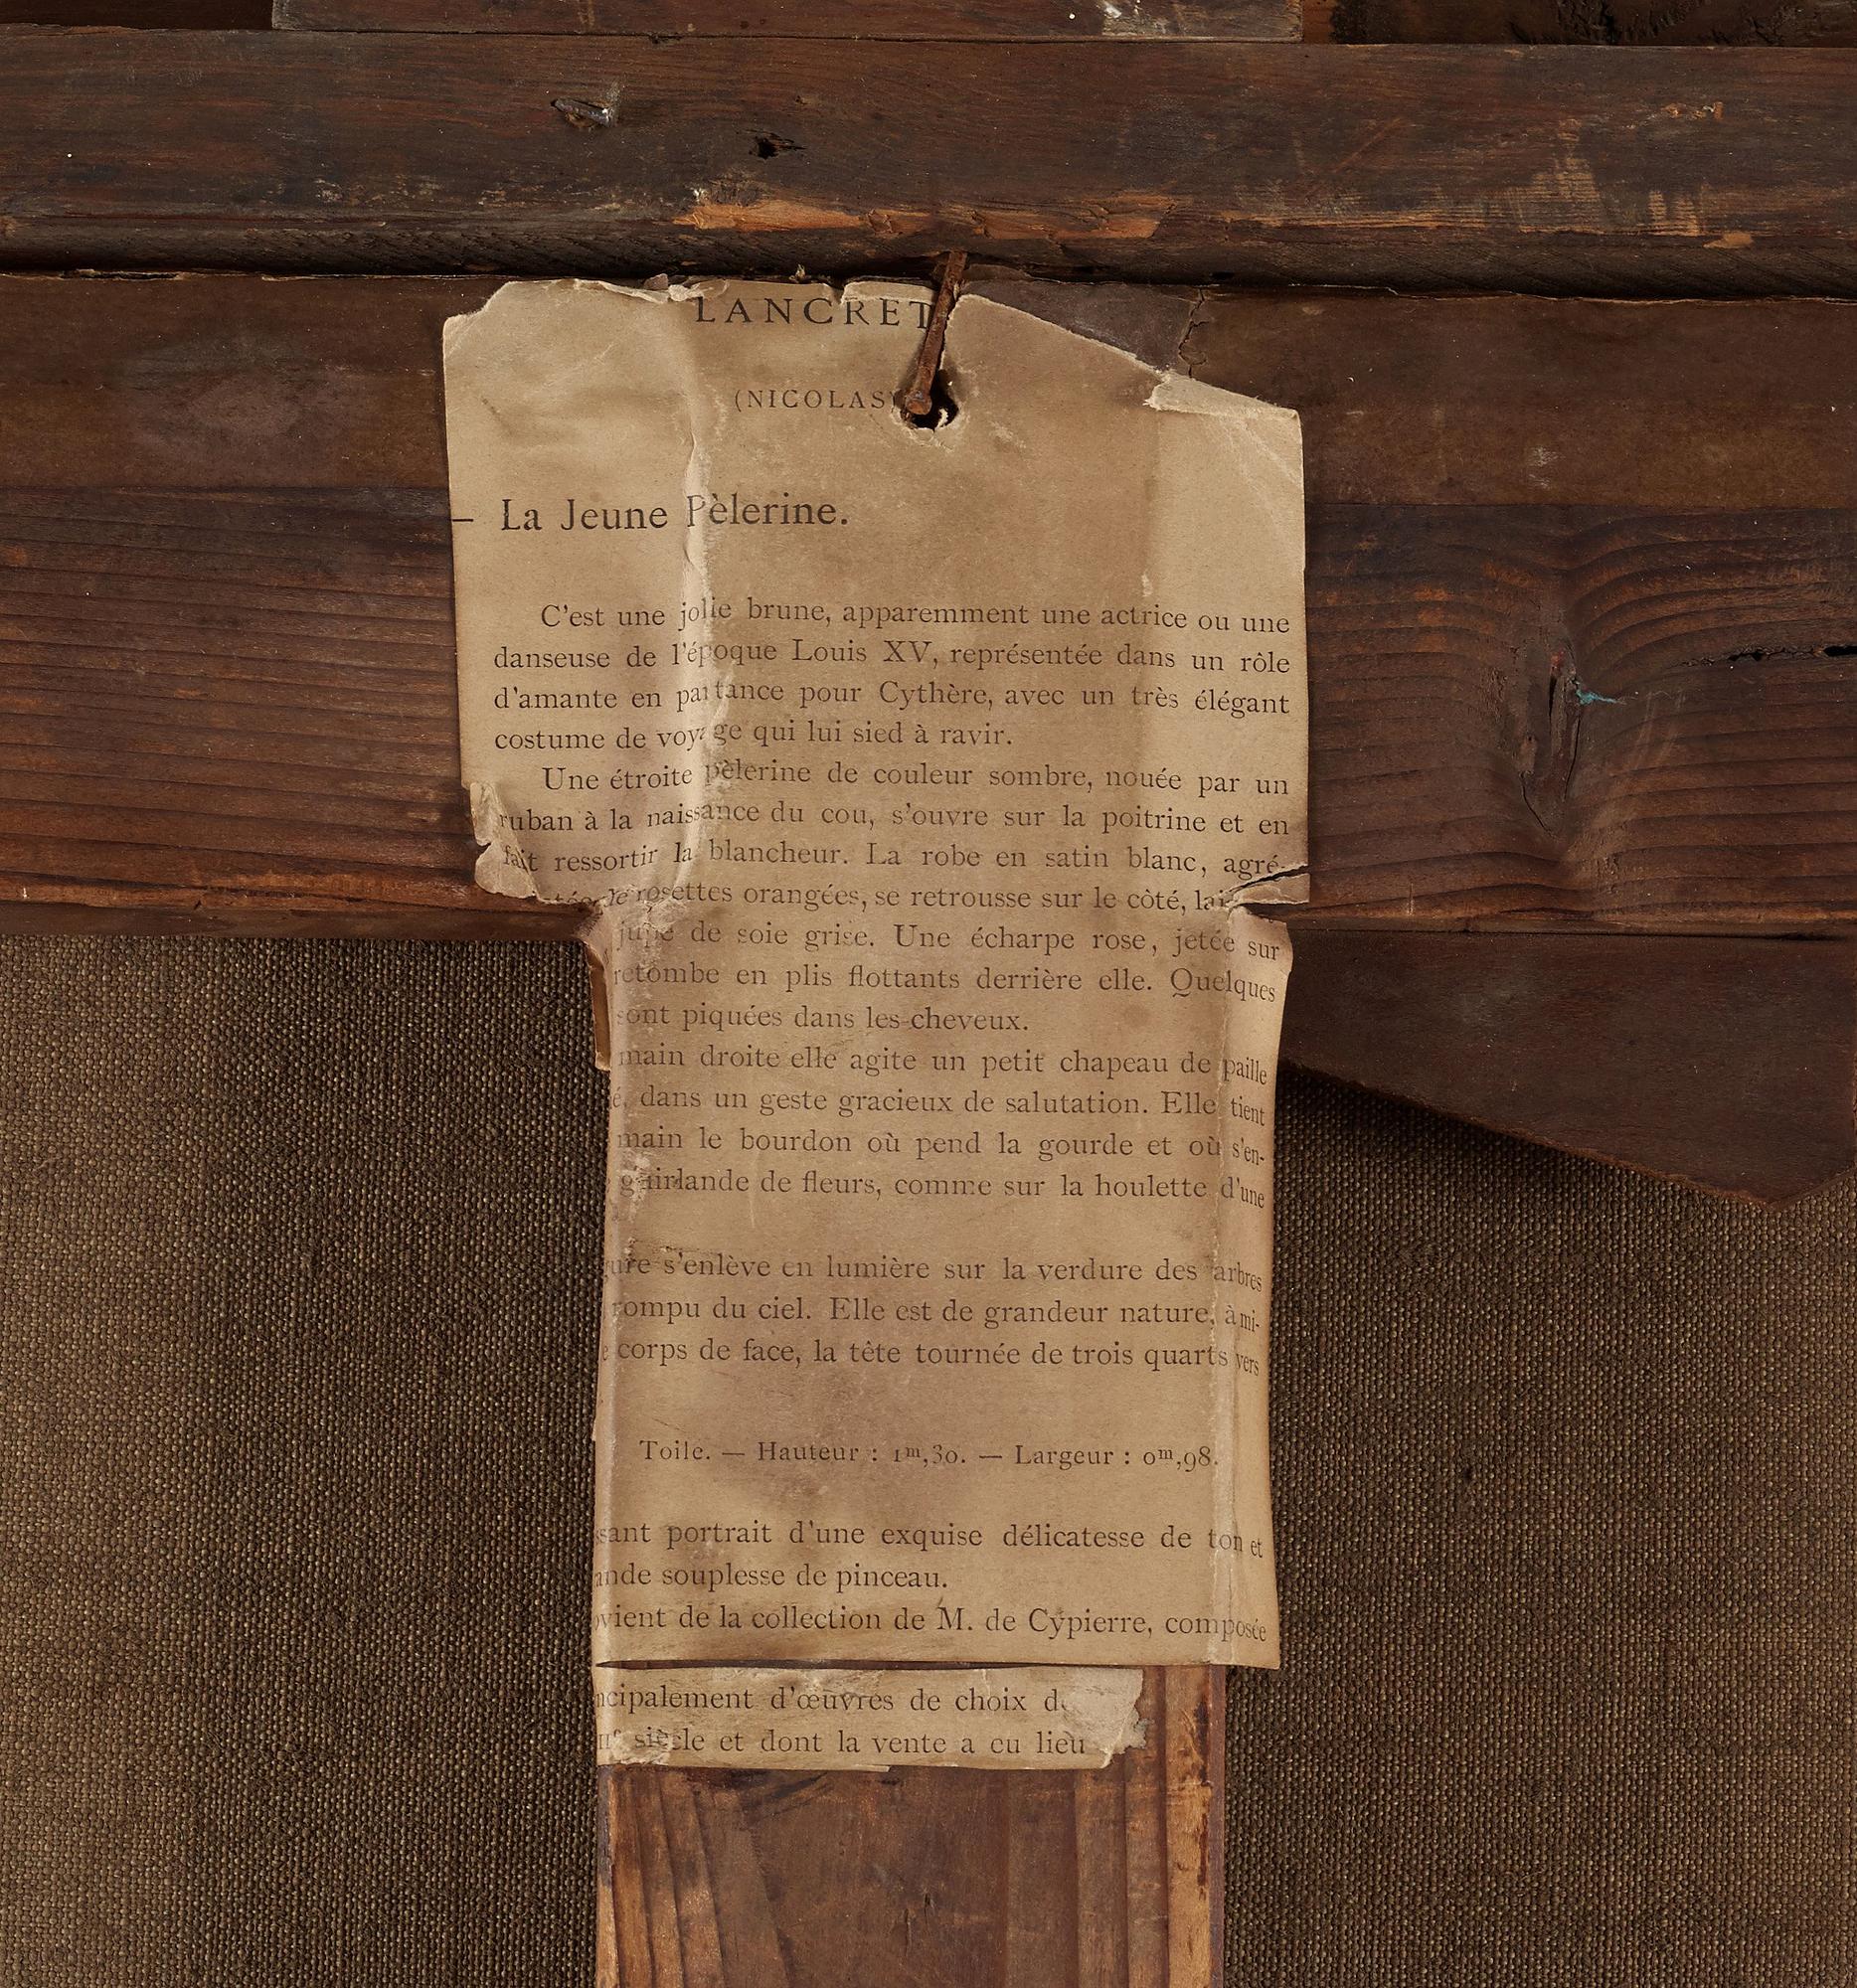 LANCRET
(NICOLAS)
— La Jeune Pèlerine.
C'est une jolie brune, apparemment une actrice ou une
danseuse de l'époque Louis XV, représentée dans un rôle
d'amante en partance pour Cythère, avec un très élégant
costume de voyage qui lui sied à ravir.
Une étroite pèlerine de couleur sombre, nouée par un
ruban à la naissance du cou, s'ouvre sur la poitrine et en
fait ressortir la blancheur. La robe en satin blanc, agré-
de rosettes orangées, se retrousse sur le côté,
jupe de soie grise. Une écharpe rose, jetée sur
retombe en plis flottants derrière elle. Quelques
sont piquées dans les cheveux.
main droite elle agite un petit chapeau de paille
dans un geste gracieux de salutation. Elle tient
main le bourdon où pend la gourde et où s'en-
guirlande de fleurs, comme sur la houlette d'une
s'enlève en lumière sur la verdure des arbres
rompu du ciel. Elle est de grandeur nature, à mi-
corps de face, la tête tournée de trois quarts vers
Toile. — Hauteur : 1m,30. — Largeur : 0m,98.
sant portrait d'une exquise délicatesse de ton et
ande souplesse de pinceau.
vient de la collection de M. de Cypierre, composée
ncipalement d'œuvres de choix
siècle et dont la vente a eu lieu